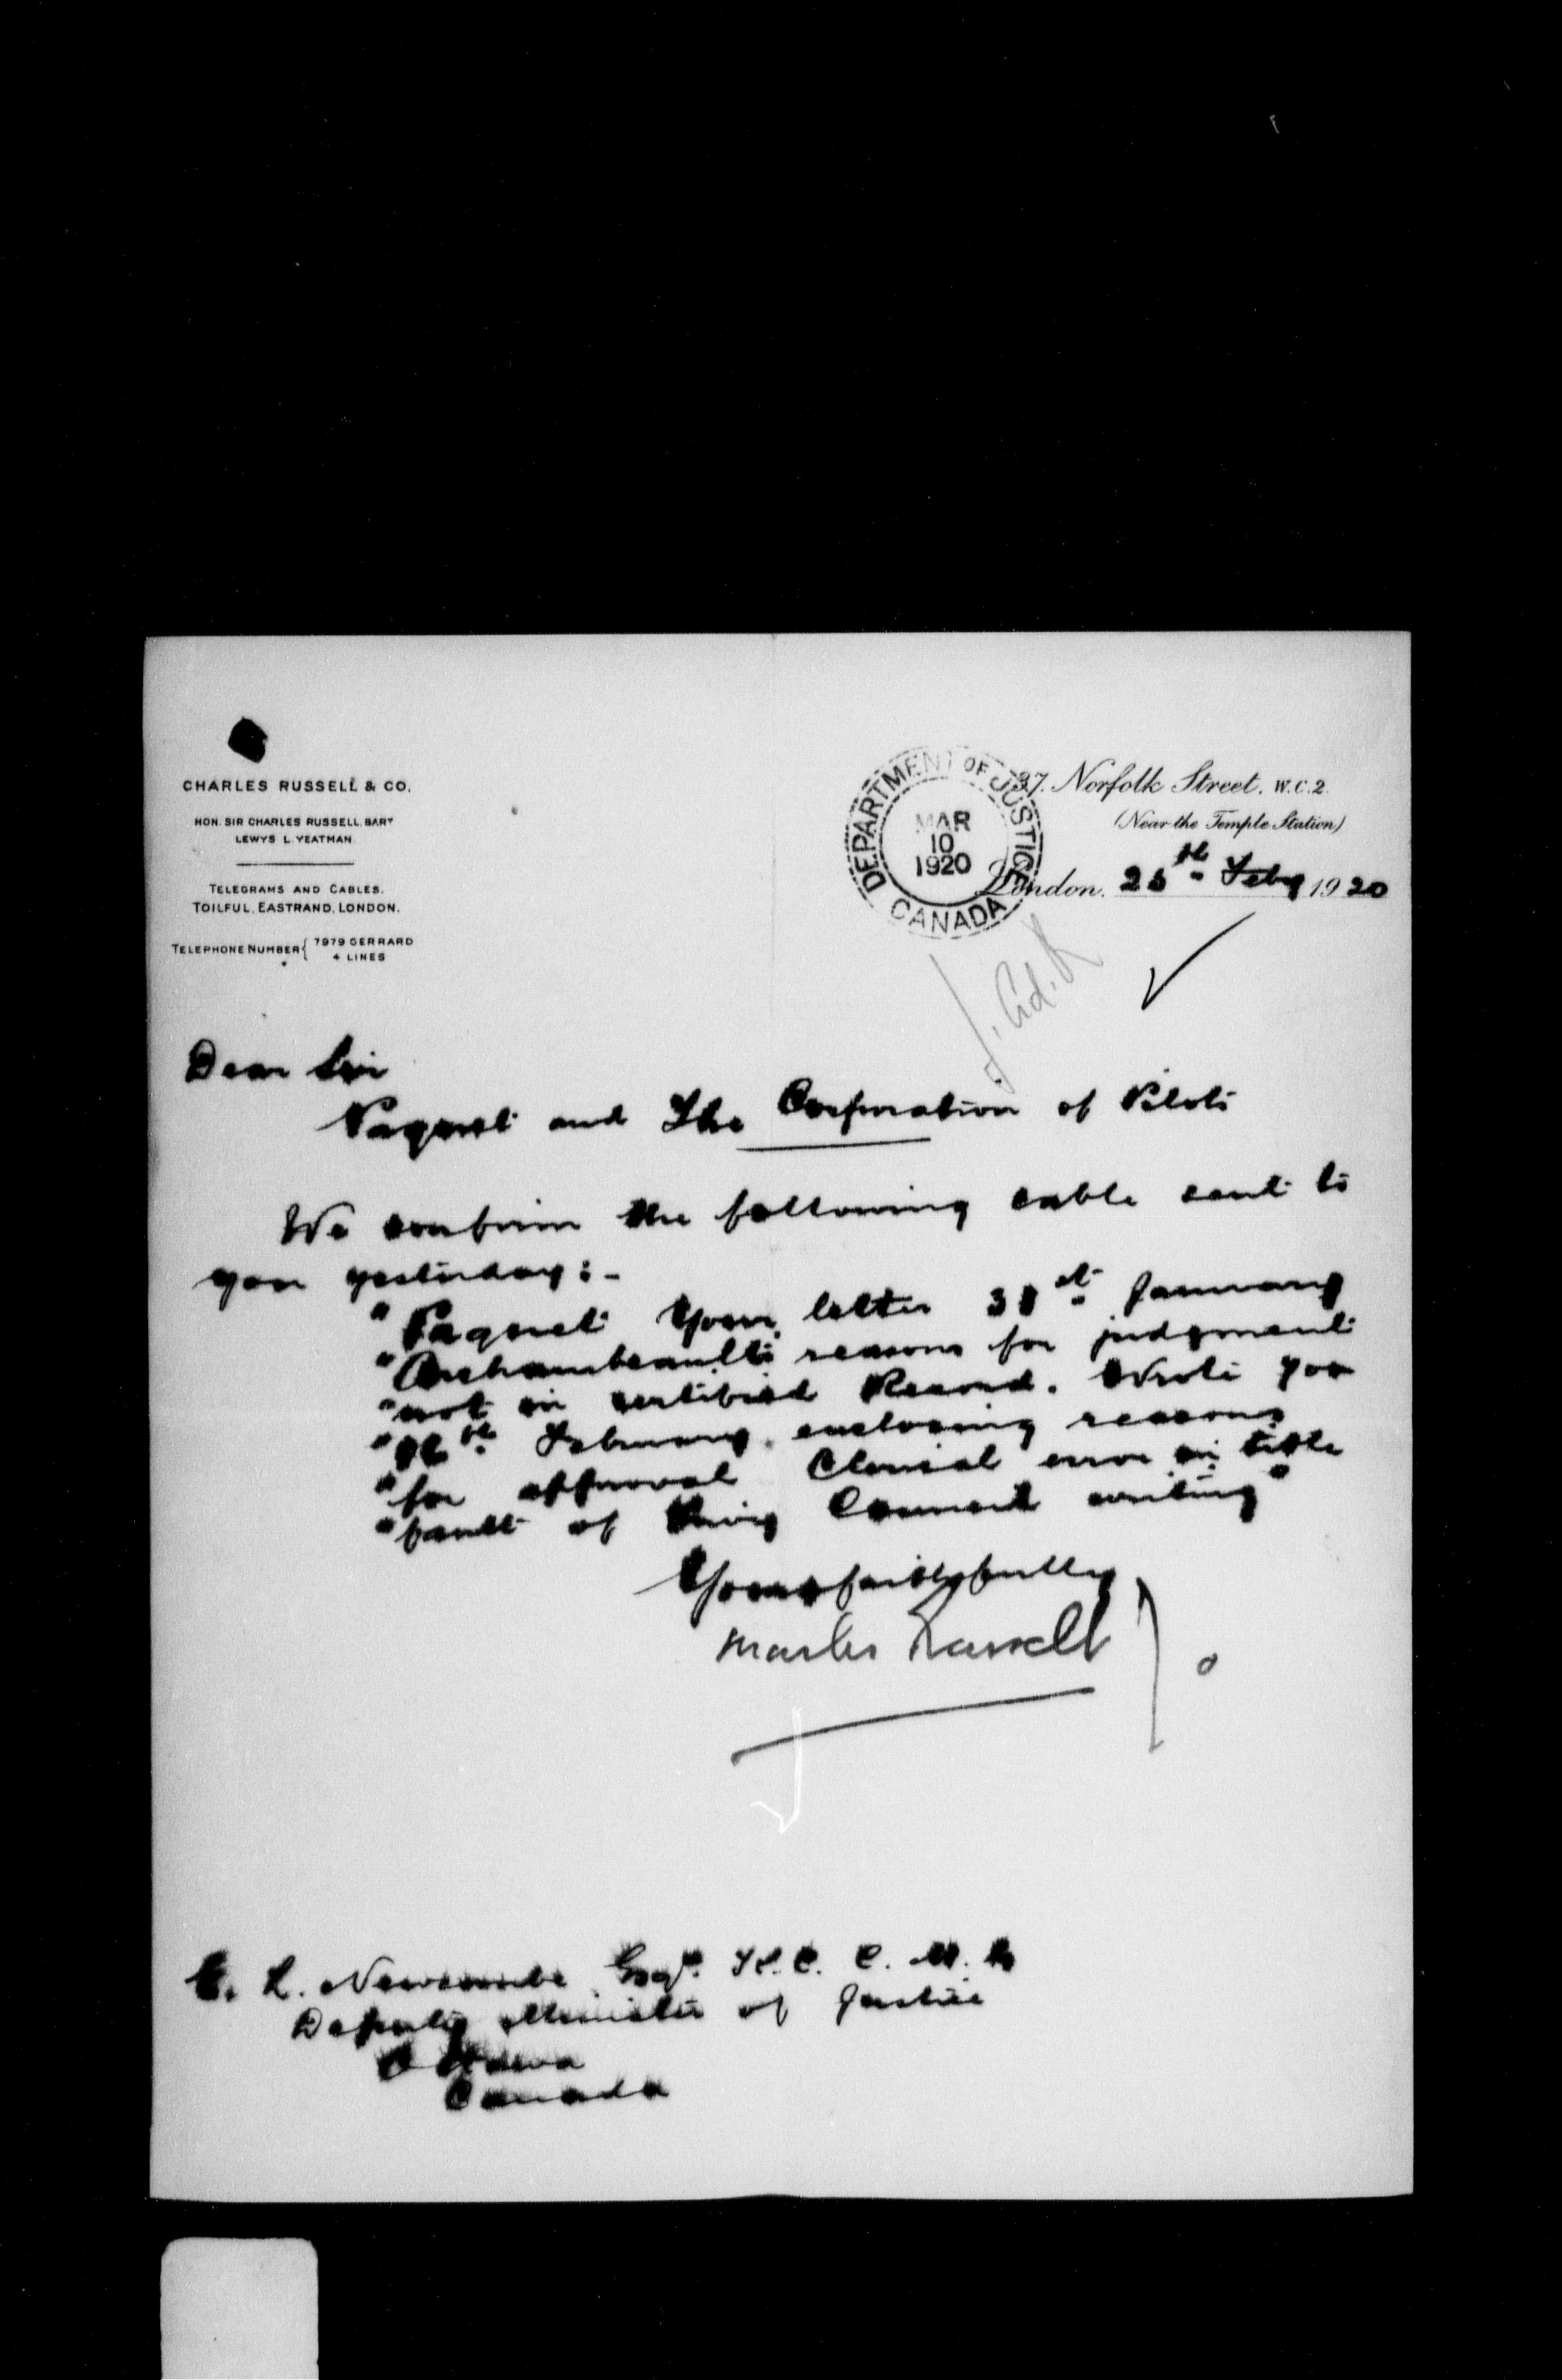 CHARLES RUSSELL & CO.
HON. SIR CHARLES RUSSELL, BART
LEWYS L. YEATMAN
TELEGRAMS AND CABLES.
TOILFUL, EASTRAND, LONDON.
TELEPHONE NUMBER { 7979 GERRARD
4 LINES
DEPARTMENT OF JUSTICE
MAR
10
1920
CANADA
37, Norfolk Street, W.C.2.
(Near the Temple Station)
London, 25th Feby 1920
Dear Sir
Paquet and The Corporation of Pilots
We confirm the following cable sent to
you yesterday:-
"Paquet Your letter 31st January
"Archambeault's reasons for judgment
"not in certified Record. Wrote you
"February enclosing reasons
"for approval Clerical error in title
"fault of Privy Council writing"
Yours faithfully
Charles Russell & Co
E. L. Newcombe Esqre K.C. C.M.G
Deputy Minister of Justice
Ottawa
Canada